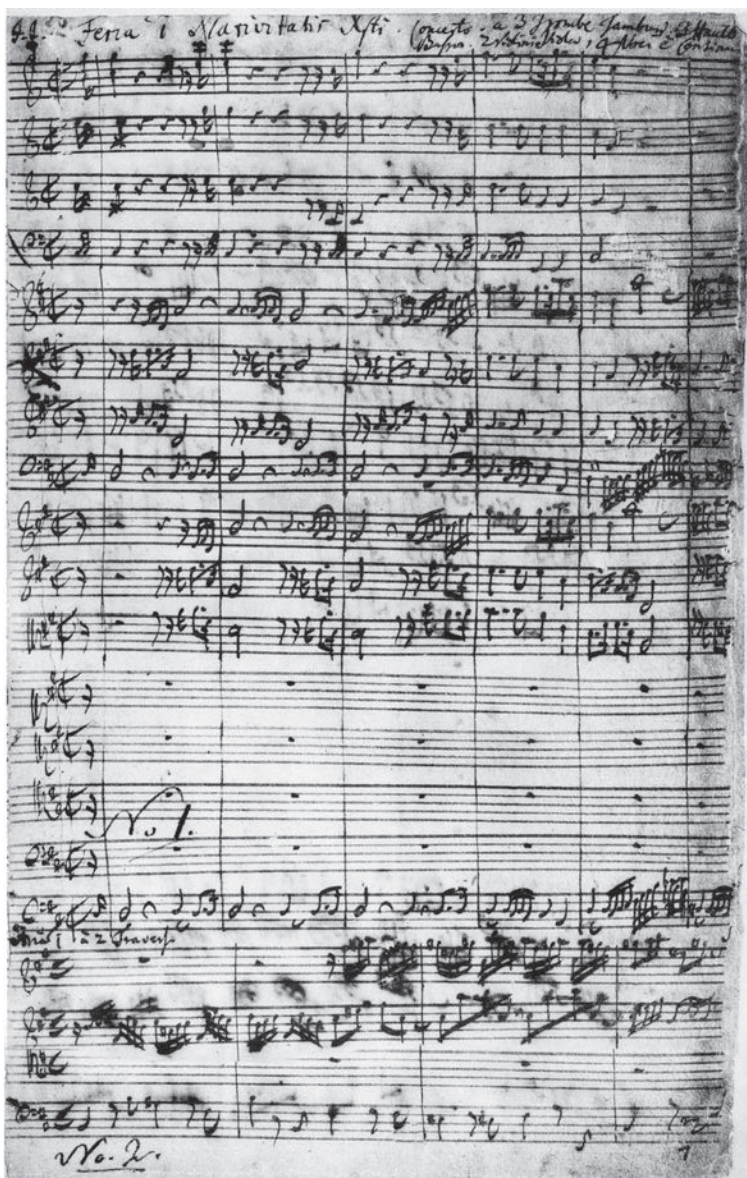 J.J. Feria 1 Nativitatis Xsti. Concerto. a 3 Trombe Tamburi. 2 Hautb
Basson. 2 Violini Viola, 4 Voci è Continuo
No 1.
1 à 2 Travers.
No. 2.
1